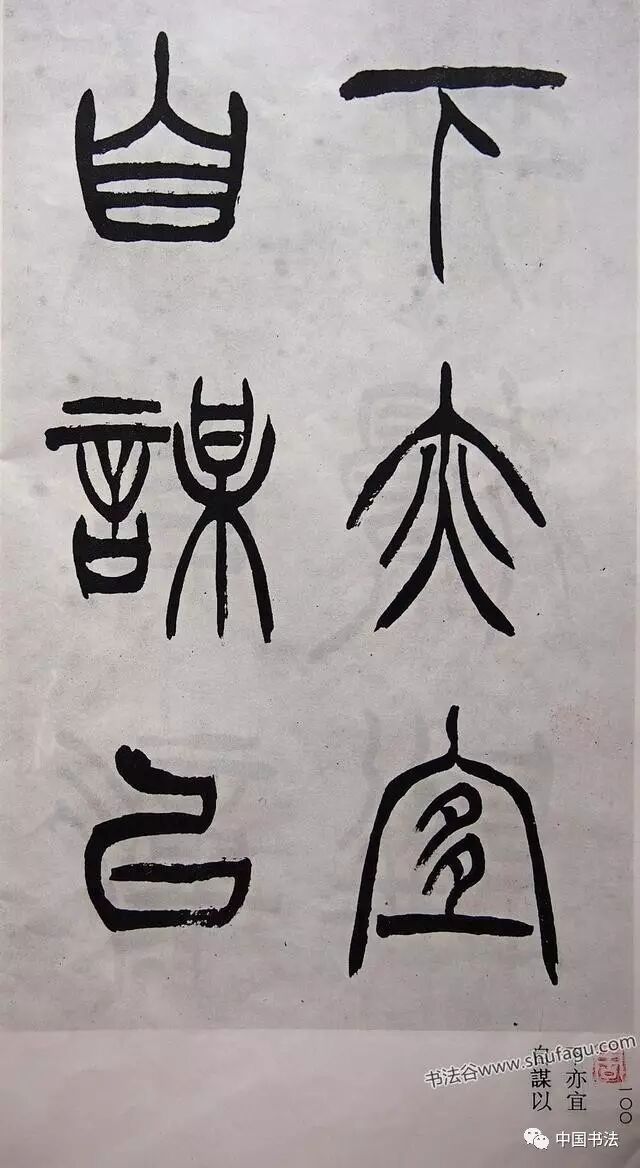 下亦宜
自謀以
下亦宜
自謀以
一〇〇
书法谷www.shufagu.com
中国书法